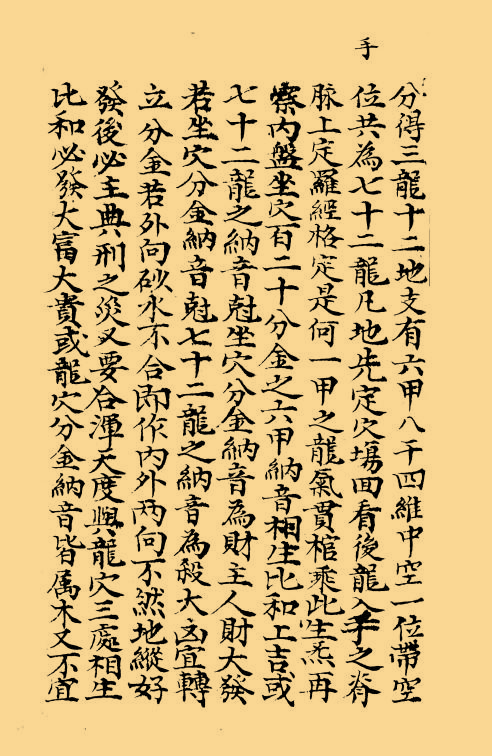 手
分得三龍十二地支有六甲八干四維中空一位帶空
位共為七十二龍凡地先定穴塲回看後龍入手之脊
脉上定羅經格定是何一甲之龍氣貫棺乘此生炁再
察内盤坐穴百二十分金之六甲納音相生比和上吉或
七十二龍之納音尅坐穴分金納音為財主人財大發
若坐穴分金納音尅七十二龍之納音為殺大凶宜轉
立分金若外向砂水不合即作内外两向不然地縱好
發後必主典刑之災又要合渾天度與龍穴三處相生
比和必發大富大貴或龍穴分金納音皆属木又不宜